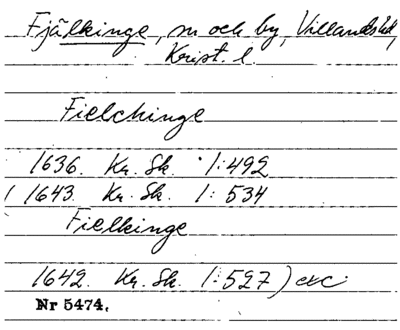 Fjälkinge, sn och by, Villands hd,
Krist. l.
Fielchinge
1636. Kr. Sk. 1:492
1643. Kr. Sk. 1:534
Fielkinge
1642. Kr. Sk. 1:527) etc.
Nr 5474.